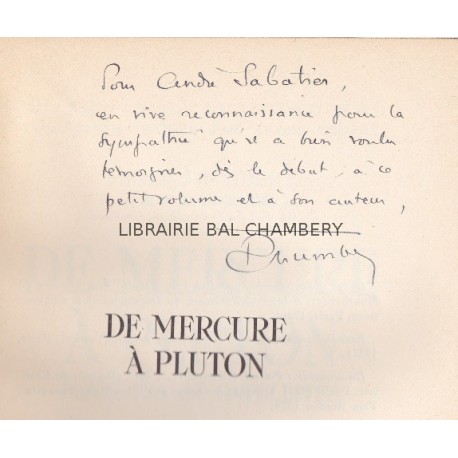 Pour André Sabatier,
en vive reconnaissance pour la
sympathie qu'il a bien voulu
témoigner, dès le début, à ce
petit volume et à son auteur,
LIBRAIRIE BAL CHAMBERY
DE MERCURE
À PLUTON